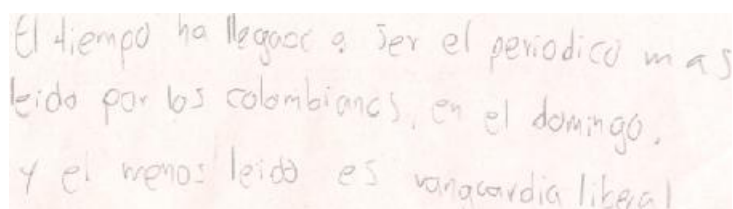 El tiempo ha llegado a ser el periodico mas
leido por los colombianos, en el domingo.
y el menos leido es vanguardia liberal